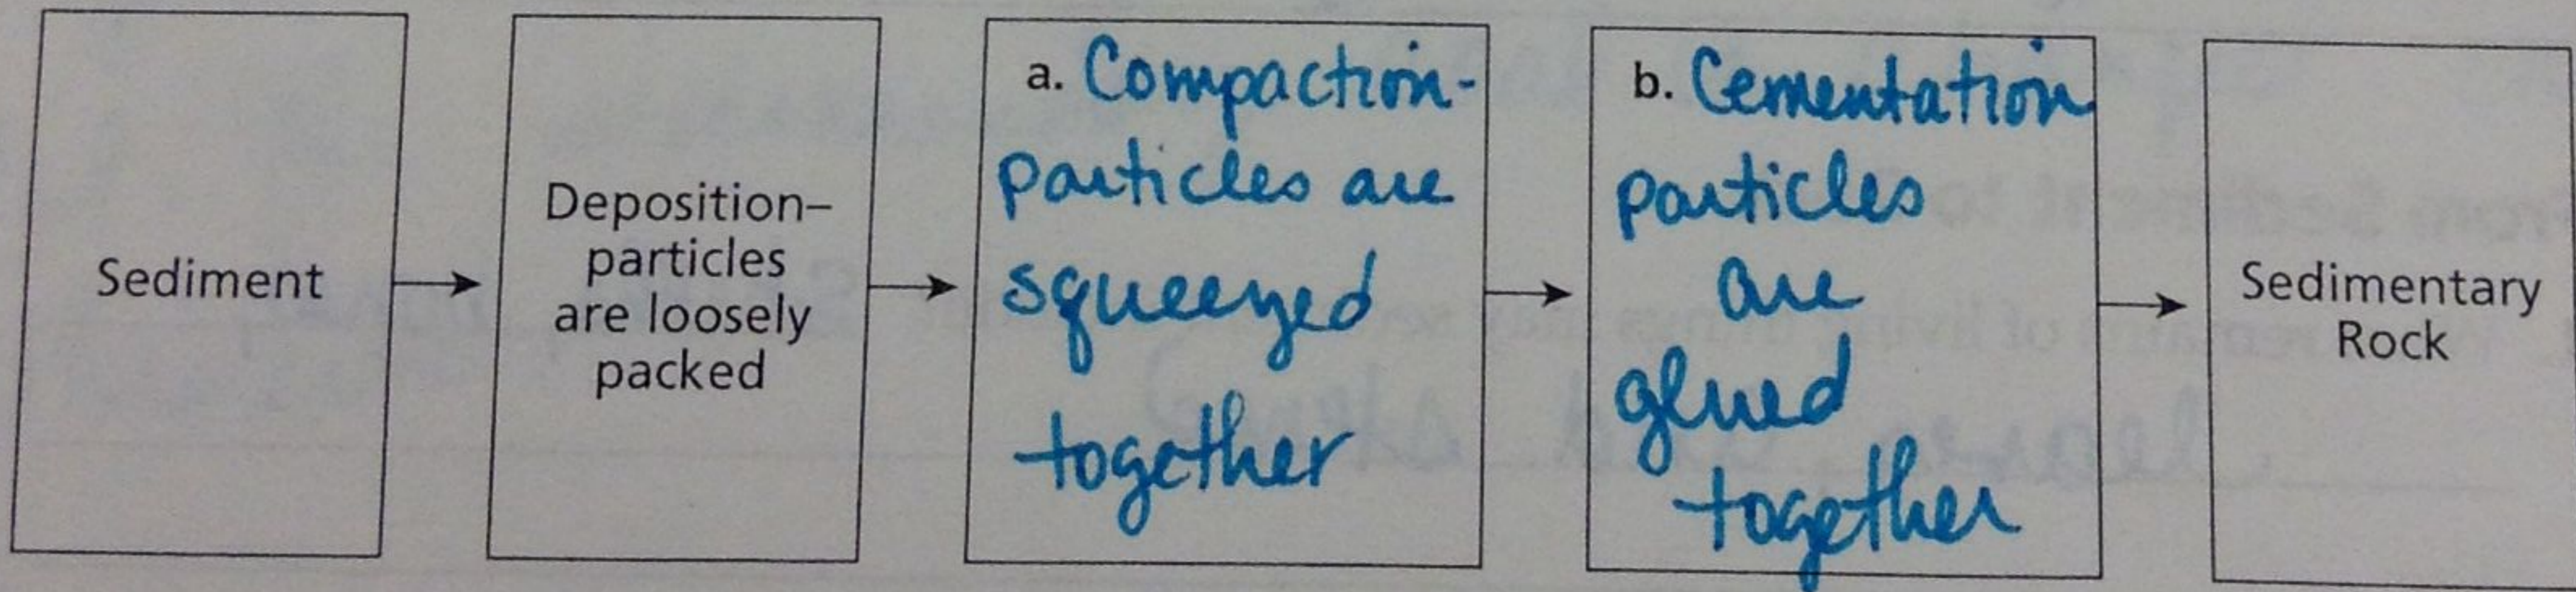 Sediment
Deposition–
particles
are loosely
packed
a. Compaction-
particles are
squeezed
together
b. Cementation
particles
are
glued
together
Sedimentary
Rock